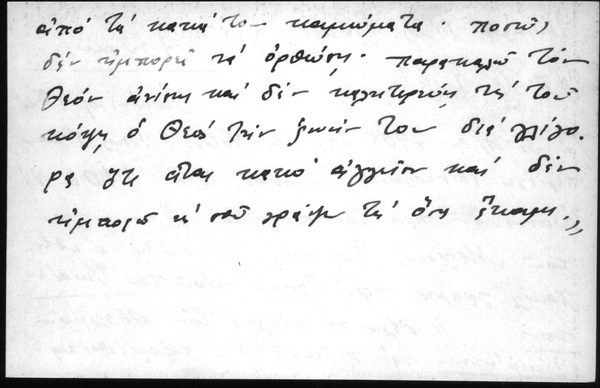 ἀπό τά κακά του καμώματα. ποσῶς
δέν ἠμπορεῖ νά ὀρθώσῃ. παρακαλῶ τόν
Θεόν ἀνίσως καί δέν καλητερεύσῃ νά τοῦ
κόψῃ ὁ Θεός τήν ζωήν του διά γλίγο-
ρα, ὅτι εἶναι κακό ἀγγεῖον καί δέν
ἠμπορῶ νά σοῦ γράψω τά ὅσα ἔκαμε.,,